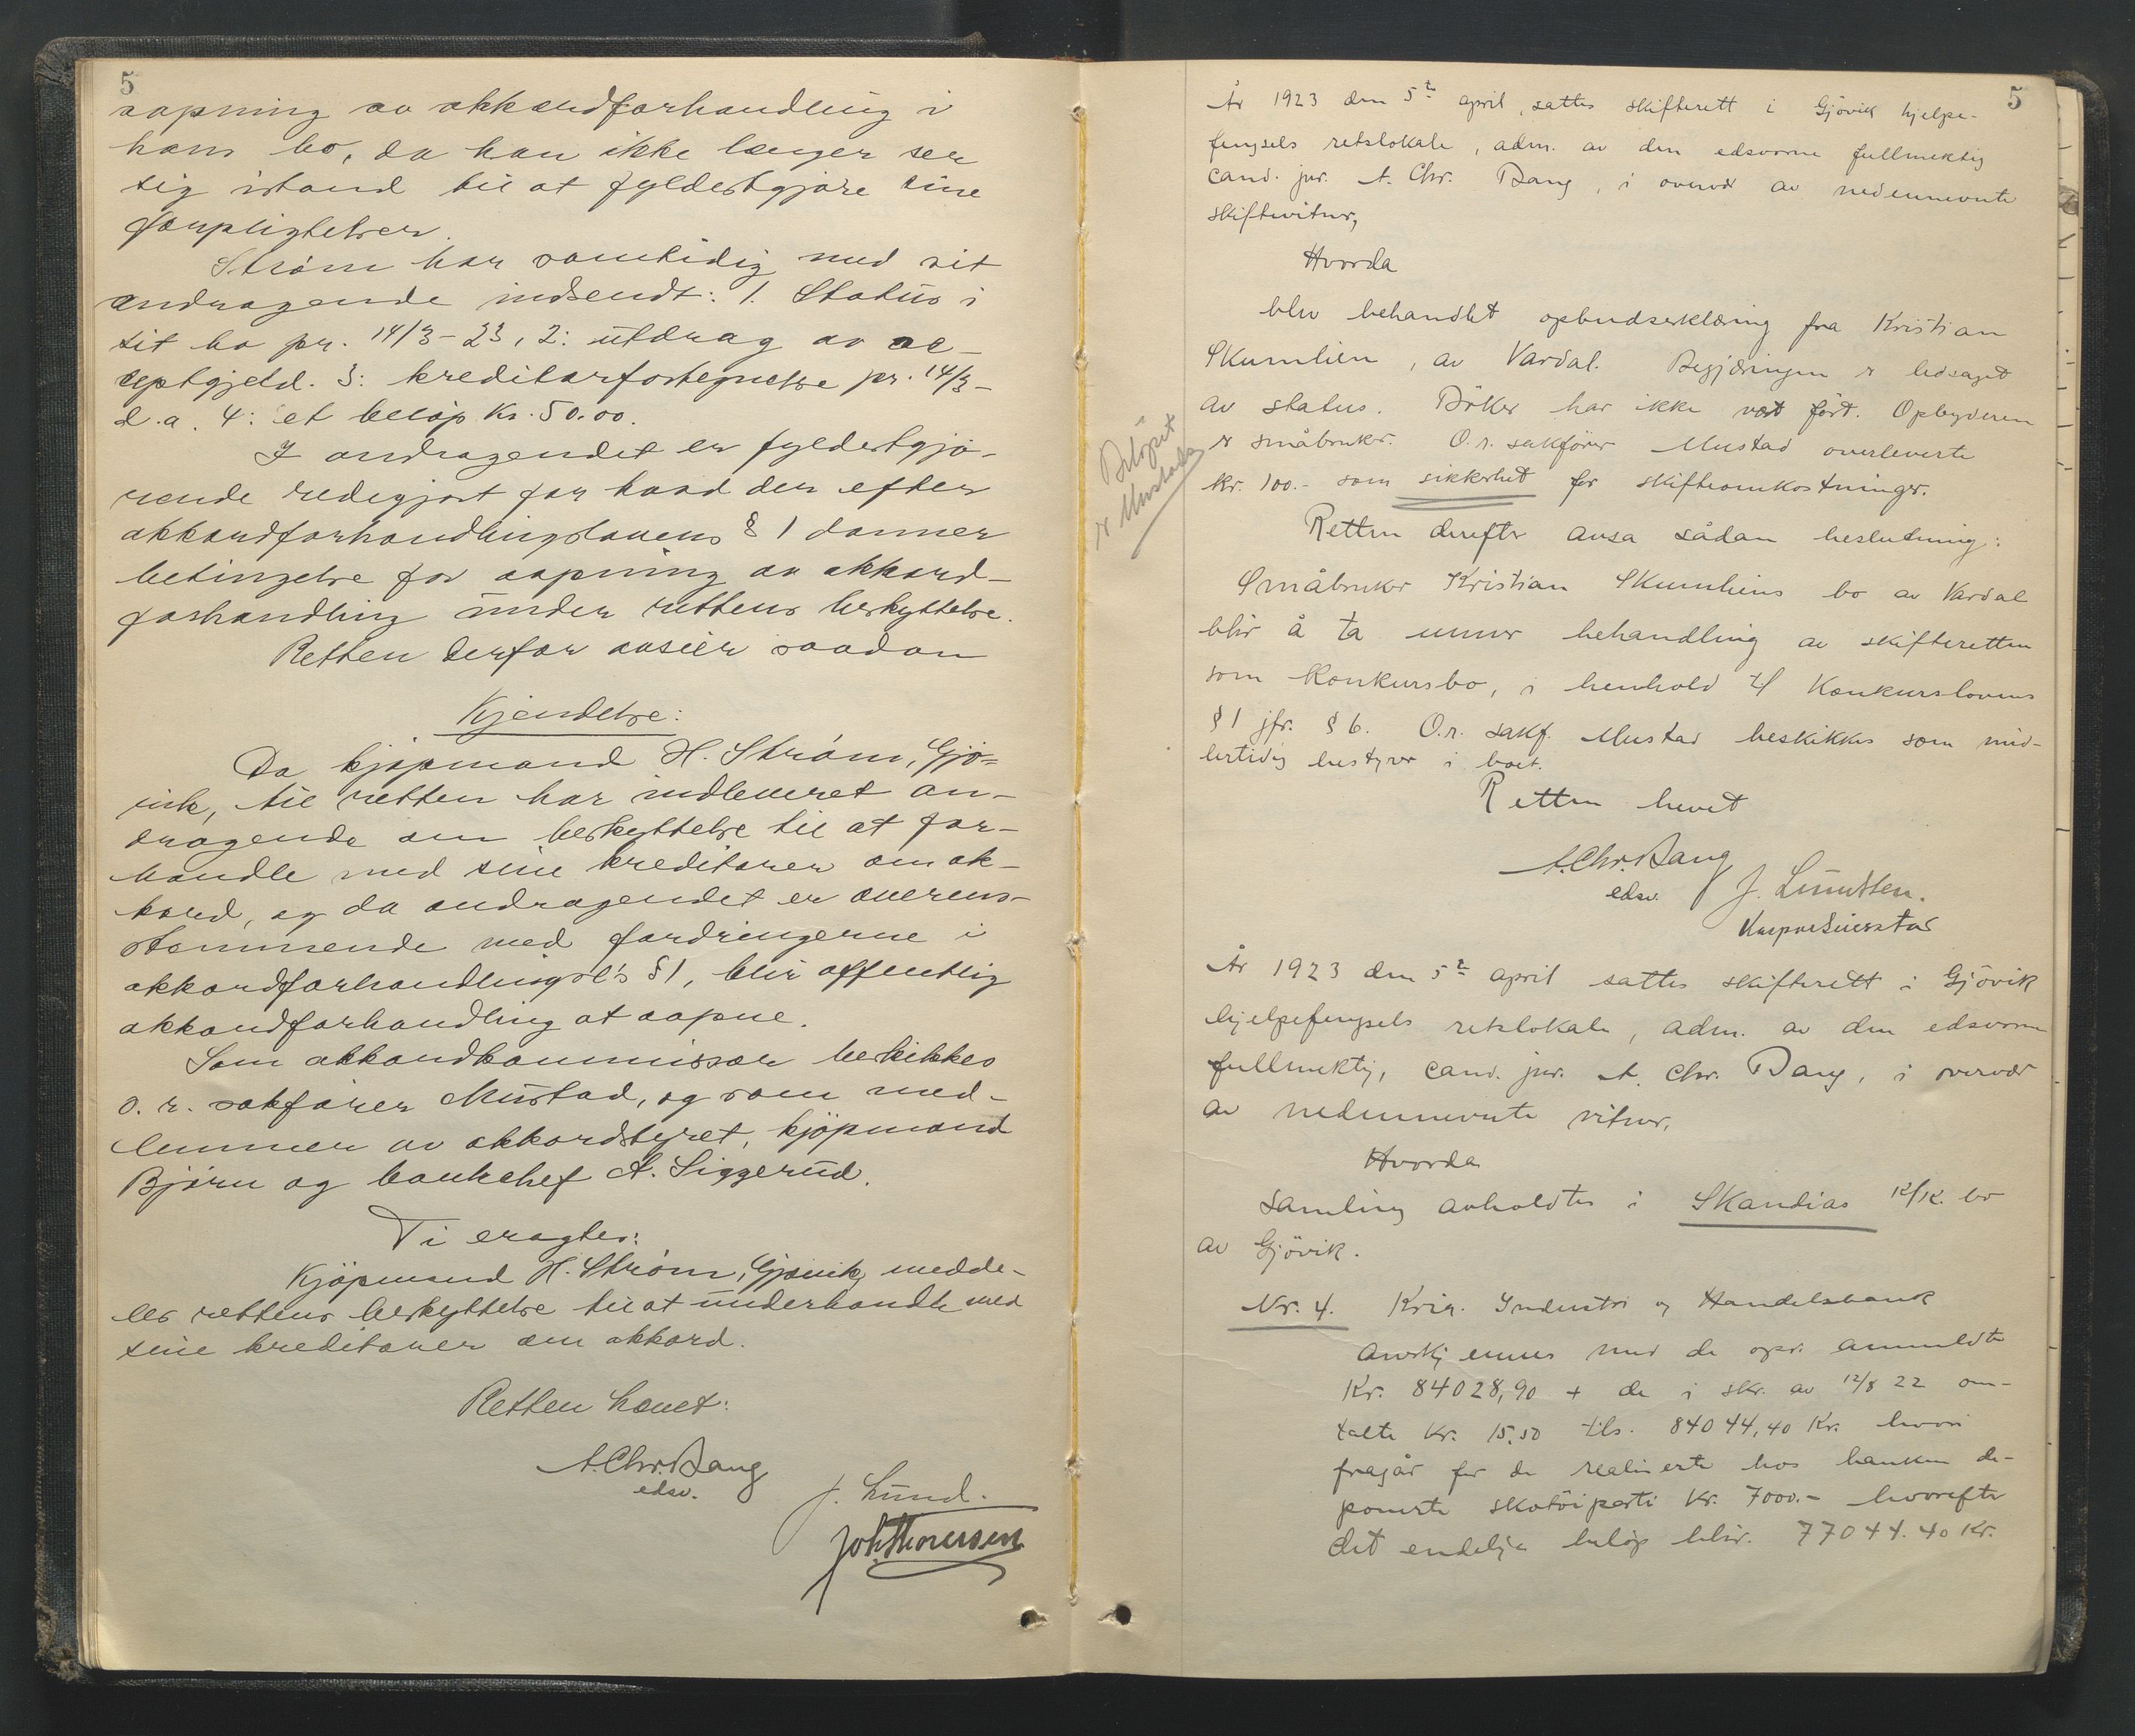 5
aapning av akkordforhandling i
hans bo, da han ikke længer ser
sig istand til at fyldestgjøre sine
forpligtelser.
Strøm har samtidig med sit
andragende indsendt: 1. Status i
sit bo pr. 14/3-23, 2: utdrag av ac-
ceptgjeld. 3: kreditorfortegnelse pr. 14/3
d.a. 4: et beløp kr. 50.00.
I andragendet er fyldestgjø-
rende redegjort for hvad der efter
akkordforhandlingslovens § 1 danner
betingelse for aapning av akkord-
forhandling under rettens beskyttelse.
Retten derfor avsier saadan
Kjendelse:
Da kjøpmand H. Strøm, Gjø-
vik, til retten har indleveret an-
dragende om beskyttelse til at for-
handle med sine kreditorer om ak-
kord, og da andragendet er overens-
stemmende med fordringerne i
akkordforhandlingsl's §1, blir offentlig
akkordforhandling at aapne.
Som akkordkommissær beskikkes
o. r. sakfører Mustad, og som med-
lemmer av akkordstyret, kjøpmand
Bjørn og bankchef A. Siggerud.
Ti eragtes:
Kjøpmand H. Strøm, Gjøvik, medde-
les rettens beskyttelse til at underhandle med
sine kreditorer om akkord.
Retten hævet:
A. Chr. Bang
edsv.
J. Lund.
Joh. Thoresen
5
År 1923 den 5te april, sattes skifterett i Gjövik hjelpe-
fengsels retslokale, adm. av den edsvorne fullmektig
cand. jur. A. Chr. Bang, i overvær av nedennevnte
skiftevitner,
Hvorda
blev behandlet opbudserklæring fra Kristian
Skumlien, av Vardal. Begjæringen er ledsaget
av status. Böker har ikke vært fört. Opbyderen
er småbruker. O.r. sakförer Mustad overleverte
kr. 100.- som sikkerhet for skifteomkostninger.
Belöpet
er Mustads
Retten derefter avsa sådan beslutning:
Småbruker Kristian Skumliens bo av Vardal
blir å ta under behandling av skifteretten
som konkursbo, i henhold til Konkurslovens
§ 1 jfr. § 6. O.r. sakf. Mustad beskikkes som mid-
lertidig bestyrer i boet.
Retten hevet
A. Chr. Bang
edsv.
J. Lundsten.
År 1923 den 5te april sattes skifterett i Gjövik
hjelpefengsels retslokale, adm. av den edsvorne
fullmektig, cand. jur. A. Chr. Bang, i overvær
av nedennevnte vitner,
Hvorda
Samling avholdtes i Skandias K/K. bo
av Gjövik.
Nr. 4. Kria. Industri og Handelsbank
anerkjennes med de opr. anmeldte
Kr. 84028,90 + de i skr. av 12/8 22 om-
talte Kr. 15,50 tils. 84044,40 Kr. hvori
fragår for de realiserte hos banken de-
ponerte skotöiparti Kr. 7000.- hvorefter
det endelige belöp blir. 77044.40 Kr.